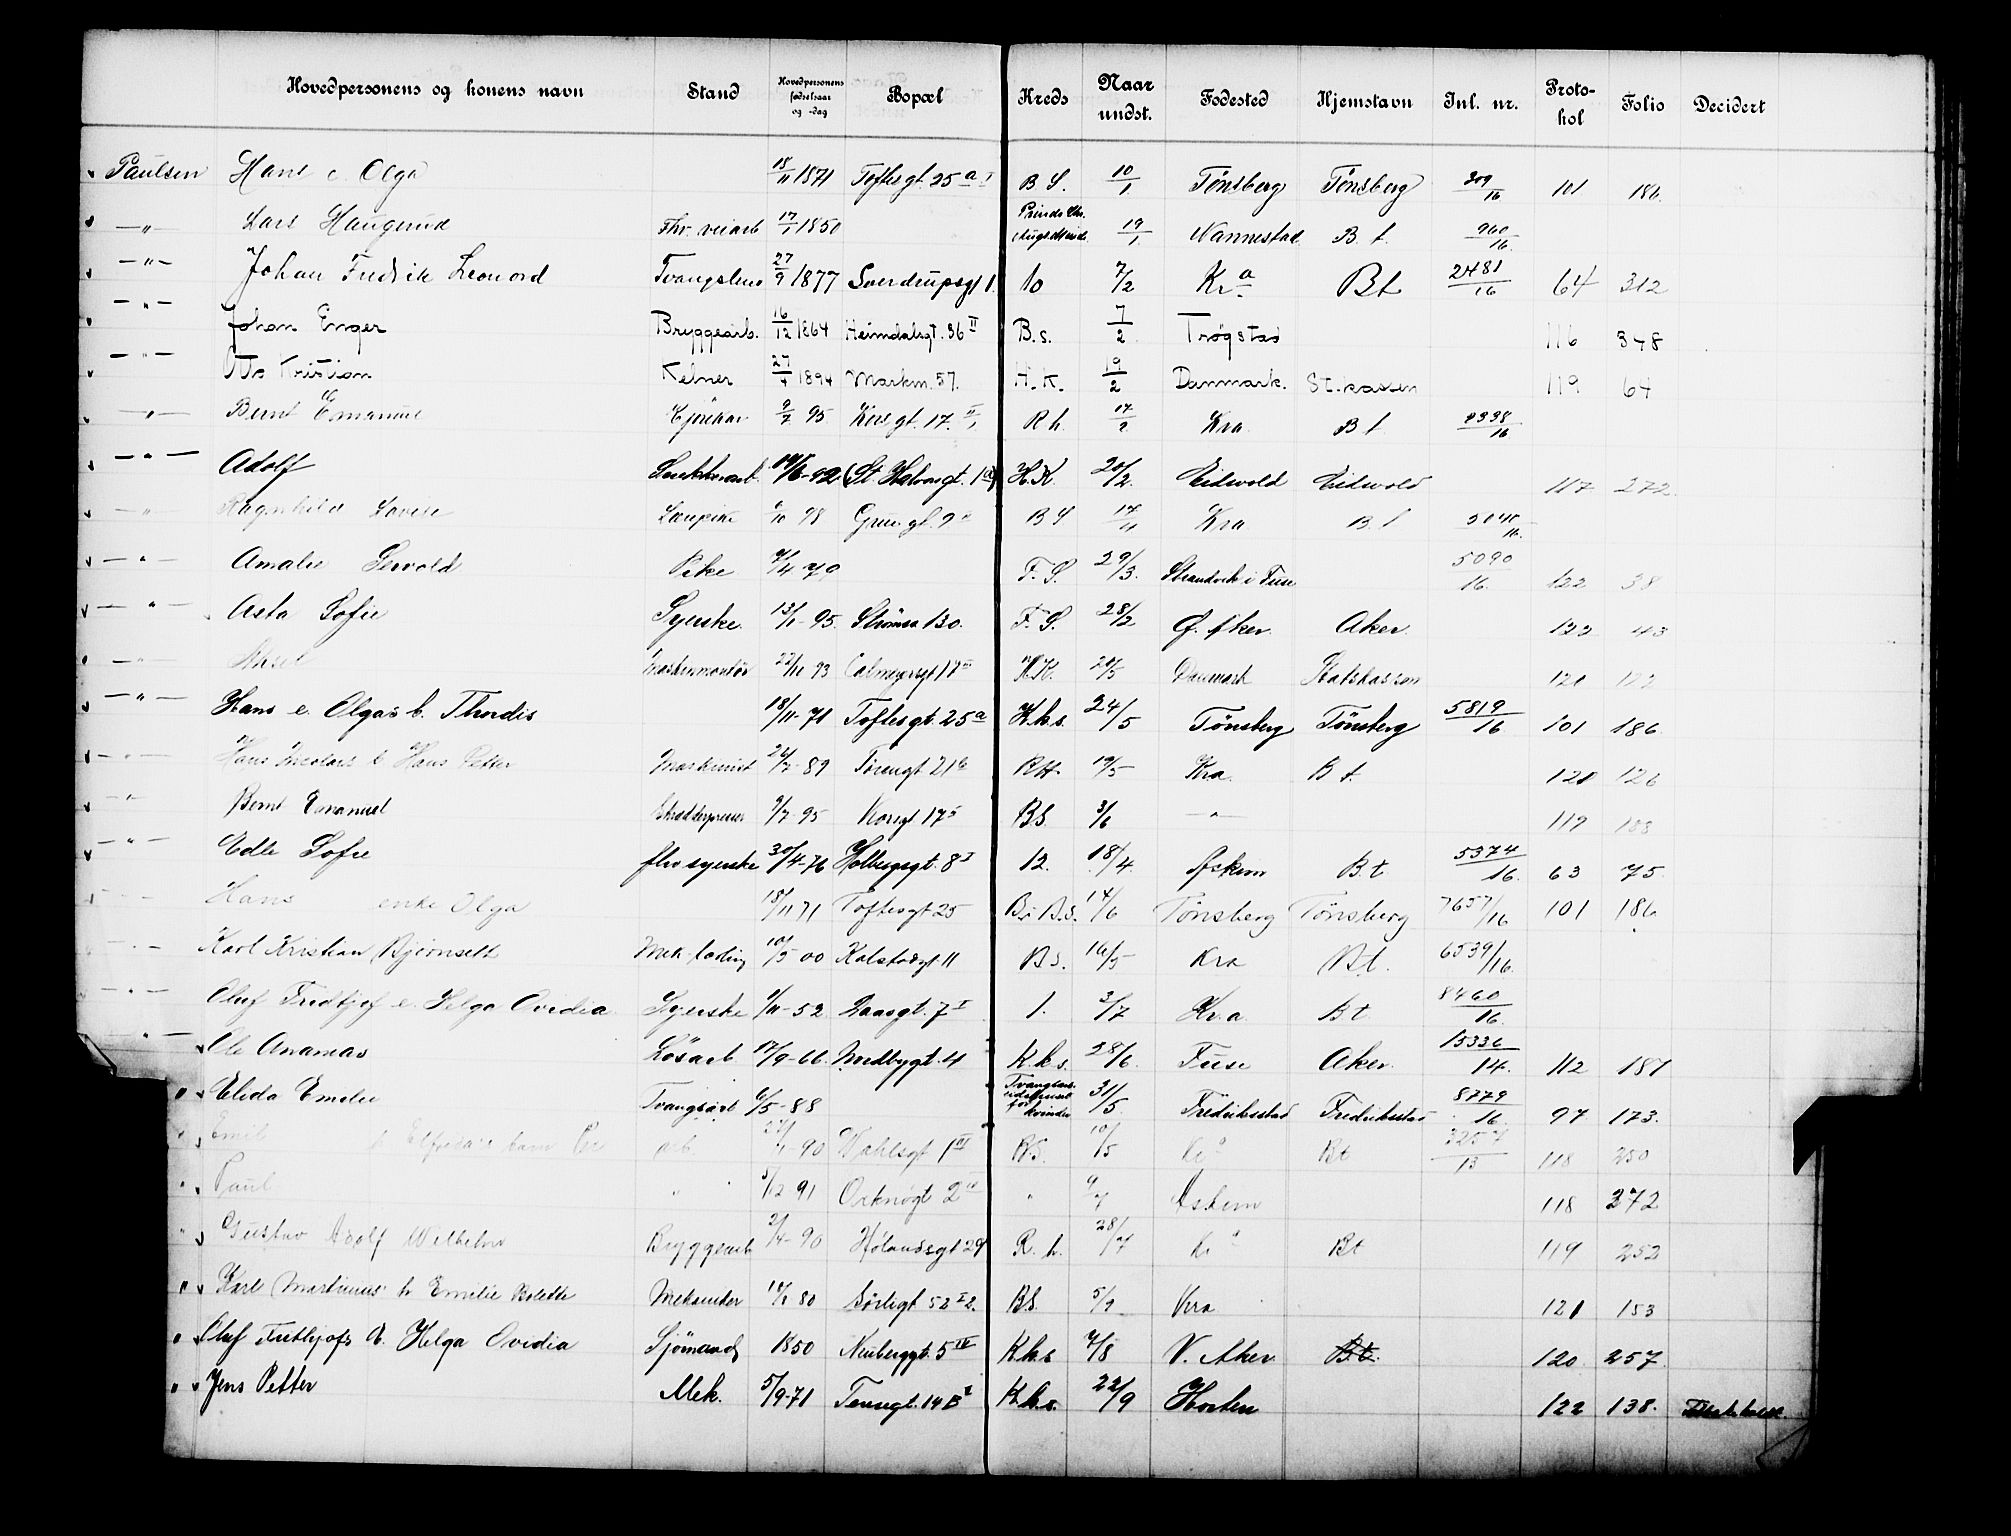 Hovedpersonens og konens navn Stand Hovedpersonens fødselsaar og -dag Bopæl Kreds Naar undst. Fødested Hjemstavn Inl. nr. Protokol Folio Decidert
Paulsen Hans e. Olga 18/11 1871 Toftesgt. 25 a B S. 10/1 Tönsberg Tönsberg 309/16 101 186.
—"— Lars Haugerud Fhv. veiarb 17/1 1850 19/1 Nannestad B. t. 960/16.
—"— Johan Fredrik Leonord 27/9 1877 Sverdrupsgt 1. 10 7/2 Kr.a Bt 2481/16 64 312
—"— Johan Enger Bryggearb. 16/12 1864 Heimdalsgt. 36 II B.s. 7/2 Trøgstad 116 348
—"— Otto Kristian Kelner 27/4 1894 Markv. 57. H.K. 19/2 Danmark. St.kassen 119 64
—"— Bernt Emanuel 9/7 95 Kors gt. 17. R h. 17/2 Kra B t 16
—"— Adolf 92 (St. Halvardgt. 1a) H.K. 20/2. Eidsvold Eidsvold 117 272
—"— Ragnhild Lovise 98 B S Kra B. t 16.
—"— Amalie Servold Pike 79 F. S. 29/3. Strandvik i Fuse 5090/16. 122 38
—"— Asta Sofie Syerske. 13/1-95. Strömsv. 130. F. S. 28/2 Ø. Aker. Aker. 122 43
—"— Aksel Maskinmontør 22/11 93 Calmeyersgt 17 III H.K. 20/5 Danmark Statskassen 120 172
—"— Hans e. Olgas b. Thordis 18/11-71 Toftesgt. 25a K.k.s. 24/5 Tönsberg Tönsberg 5819/16 101 186.
—"— Hans Nicolais b Hans Petter Maskinist 89 21b RH. 19/5 Kra. B t. 120 126
—"— Bernt Emanuel 9/7-95 Korsgt 17 BS. 3/6 —"— 119 188
—"— Edle Sofie fhv syerske 30/4-76 Holbergsgt. 8 I 12. 18/4. Askim B.t 5374/16. 63 75.
Hans enke Olga 18/11 71 Toftesgt 25 B.i B.S. 14/6 Tönsberg Tönsberg 7657/16 101 186
—"— Karl Kristian Bjørnsett 00 Kalstadgt 11 B s. 16/5 Kra Bt. 6539/16.
—"— Oluf Fredtjof e. Helga Ovidia Syerske 52 7 I 1. 3/7 Kr.a Bt 8460/16.
—"— Ole Ananias Løsarb 17/9-66. Nordbygt. 41 K.k.s. 28/6. Fuse Aker. 15336/14. 112 187
" Elida Emelie Tvangsarb 6/5-88 31/5. Fredriksstad Fredriksstad 8779/16 97 173.
" Emil b Elfridas barn arb. 90 Wahlsgt 1 III B.S. 10/5 Kr a Bt 3257/13 118 250
" Paul " " 5/12 91 Orknøgt 2 IV " 9/7 Askim 118 272
" Gustav Adolf Wilhelm Bryggearb 2/4-90 Hølandsgt 29 R. h. 28/7 Kr a Bt 119 252
" Karl Martinius b Emilie Bolette 80 Sørligt 52 I B.S. 5/9 Kra 121 153
" Oluf Frithjofs b. Helga Ovidia Sjømand 1850 Neuberggt. 5 IV K.k.s 7/8 V. Aker Bt. 120 257.
" Jens Petter Mek. 5/9-71 K.k.s. 22/9 Horten 122 138.